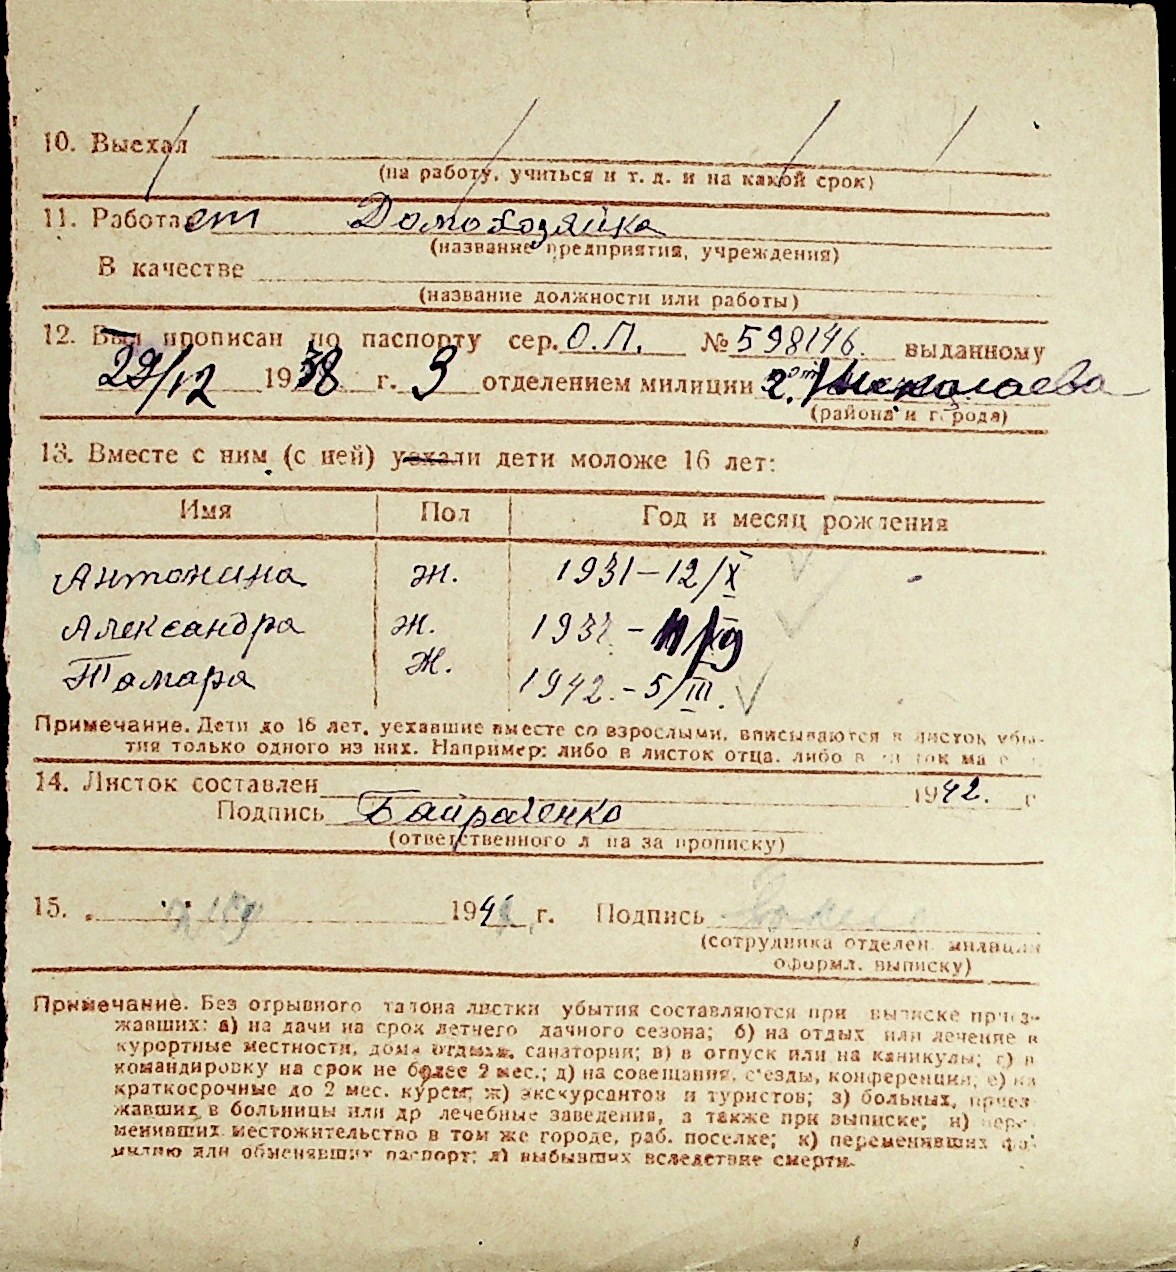 10. Выехал
(на работу, учиться и т. д. и на какой срок)
11. Работает Домохозяйка
(название предприятия, учреждения)
В качестве
(название должности или работы)
12. Был прописан по паспорту сер. О.П. № 598146. выданному
29/12 1938 г. 3 отделением милиции г. Николаева
(района и города)
13. Вместе с ним (с ней) уехали дети моложе 16 лет:
Имя Пол Год и месяц рождения
Антонина ж. 1931-12/X
Александра ж.
Тамара ж. 1942.-5/III.
Примечание. Дети до 16 лет, уехавшие вместе со взрослыми, вписываются в листок убы-
тия только одного из них. Например: либо в листок отца, либо в листок
14. Листок составлен 1942. г
Подпись Байраченко
(ответственного лица за прописку)
15. 194 г. Подпись
(сотрудника отделен. милиции
оформл. выписку)
Примечание. Без отрывного талона листки убытия составляются при выписке приез-
жавших: а) на дачи на срок летнего дачного сезона; б) на отдых или лечение в
курортные местности, дома отдыха, санатории; в) в отпуск или на каникулы; г) в
командировку на срок не более 2 мес.; д) на совещания, с'езды, конференции; е) на
краткосрочные до 2 мес. курсы; ж) экскурсантов и туристов; з) больных, приез-
жавших в больницы или др лечебные заведения, а также при выписке; и) пере-
менивших местожительство в том же городе, раб. поселке; к) переменивших фа-
милию или обменявших паспорт; л) выбывших вследствие смерти.